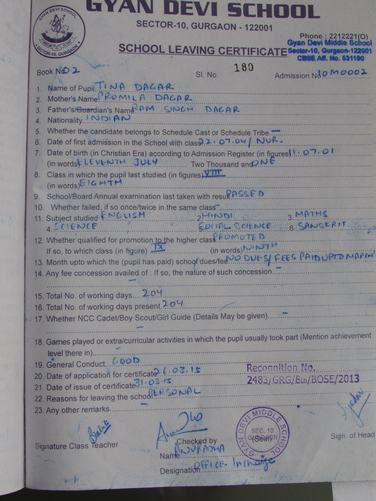 GYAN DEVI SCHOOL
SECTOR-10, GURGAON - 122001
Phone : 2212221(O)
SCHOOL LEAVING CERTIFICATE
Gyan Devi Middle School
Sector-10, Gurgaon-122001
CBSE Aff. No. 531190
Book No. 02 Sl. No. 180 Admission No. M0002
1. Name of Pupil TINA DAGAR
2. Mother's Name PROMILA DAGAR
3. Father's/Guardian's Name RAM SINGH DAGAR
4. Nationality INDIAN
5. Whether the candidate belongs to Schedule Cast or Schedule Tribe -
6. Date of first admission in the School with class 22.07.04/ NUR.
7. Date of birth (in Christian Era) according to Admission Register (in figures) 11.07.01
(in words) ELEVENTH JULY Two Thousand and ONE
8. Class in which the pupil last studied (in figures) VIII
(in words) EIGHTH
9. School/Board Annual examination last taken with result PASSED
10. Whether failed, if so once/twice in the same class -
11. Subject studied 1. ENGLISH 2. HINDI 3. MATHS
4. SCIENCE 5. SOCIAL SCIENCE 6. SANSKRIT
12. Whether qualified for promotion to the higher class PROMOTED
If so, to which class (in figure) IX (in words) NINTH
13. Month upto which the (pupil has paid) school dues/fee NO DUES/FEES PAID UPTO MARCH
14. Any fee concession availed of : If so, the nature of such concession -
15. Total No. of working days 204
16. Total No. of working days present 204
17. Whether NCC Cadet/Boy Scout/Girl Guide (Details May be given) -
18. Games played or extra/curricular activities in which the pupil usually took part (Mention achievement
level there in) -
19. General Conduct GOOD
20. Date of application for certificate 26.03.15
21. Date of issue of certificate 31.03.15
22. Reasons for leaving the school PERSONAL
23. Any other remarks -
Recognition No.
2483/GRG/Bin/BOSE/2013
GYAN DEVI MIDDLE SCHOOL
SEC. 10
GURGAON
Signature Class Teacher Checked by (Seal) Sign. of Head
Name ANURADHA
Designation Office Incharge